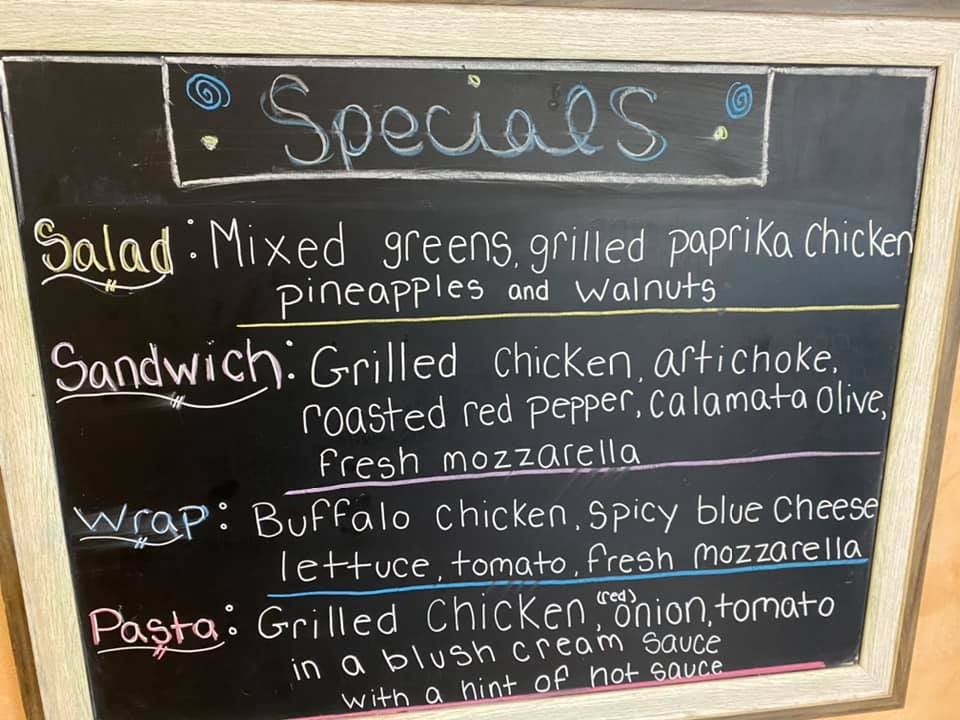 Specials
Salad: Mixed greens, grilled paprika chicken
pineapples and walnuts
Sandwich: Grilled chicken, artichoke,
roasted red pepper, calamata olive,
fresh mozzarella
Wrap: Buffalo chicken, spicy blue cheese
lettuce, tomato, fresh mozzarella
Pasta: Grilled Chicken, (red) onion, tomato
in a blush cream sauce
with a hint of hot sauce